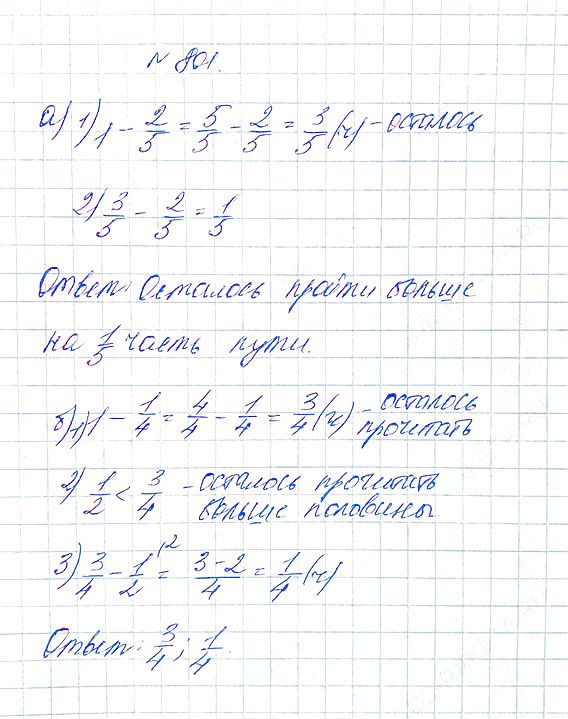 № 801.
а) 1) 1 - 2/5 = 5/5 - 2/5 = 3/5 (ч) - осталось
2) 3/5 - 2/5 = 1/5
Ответ: Осталось пройти больше
на 1/5 часть пути.
б) 1) 1 - 1/4 = 4/4 - 1/4 = 3/4 (ч) - осталось
прочитать
2) 1/2 < 3/4 - осталось прочитать
больше половины
3) 3/4 - 1/2 (2 = 3-2/4 = 1/4 (ч)
Ответ: 3/4; 1/4.